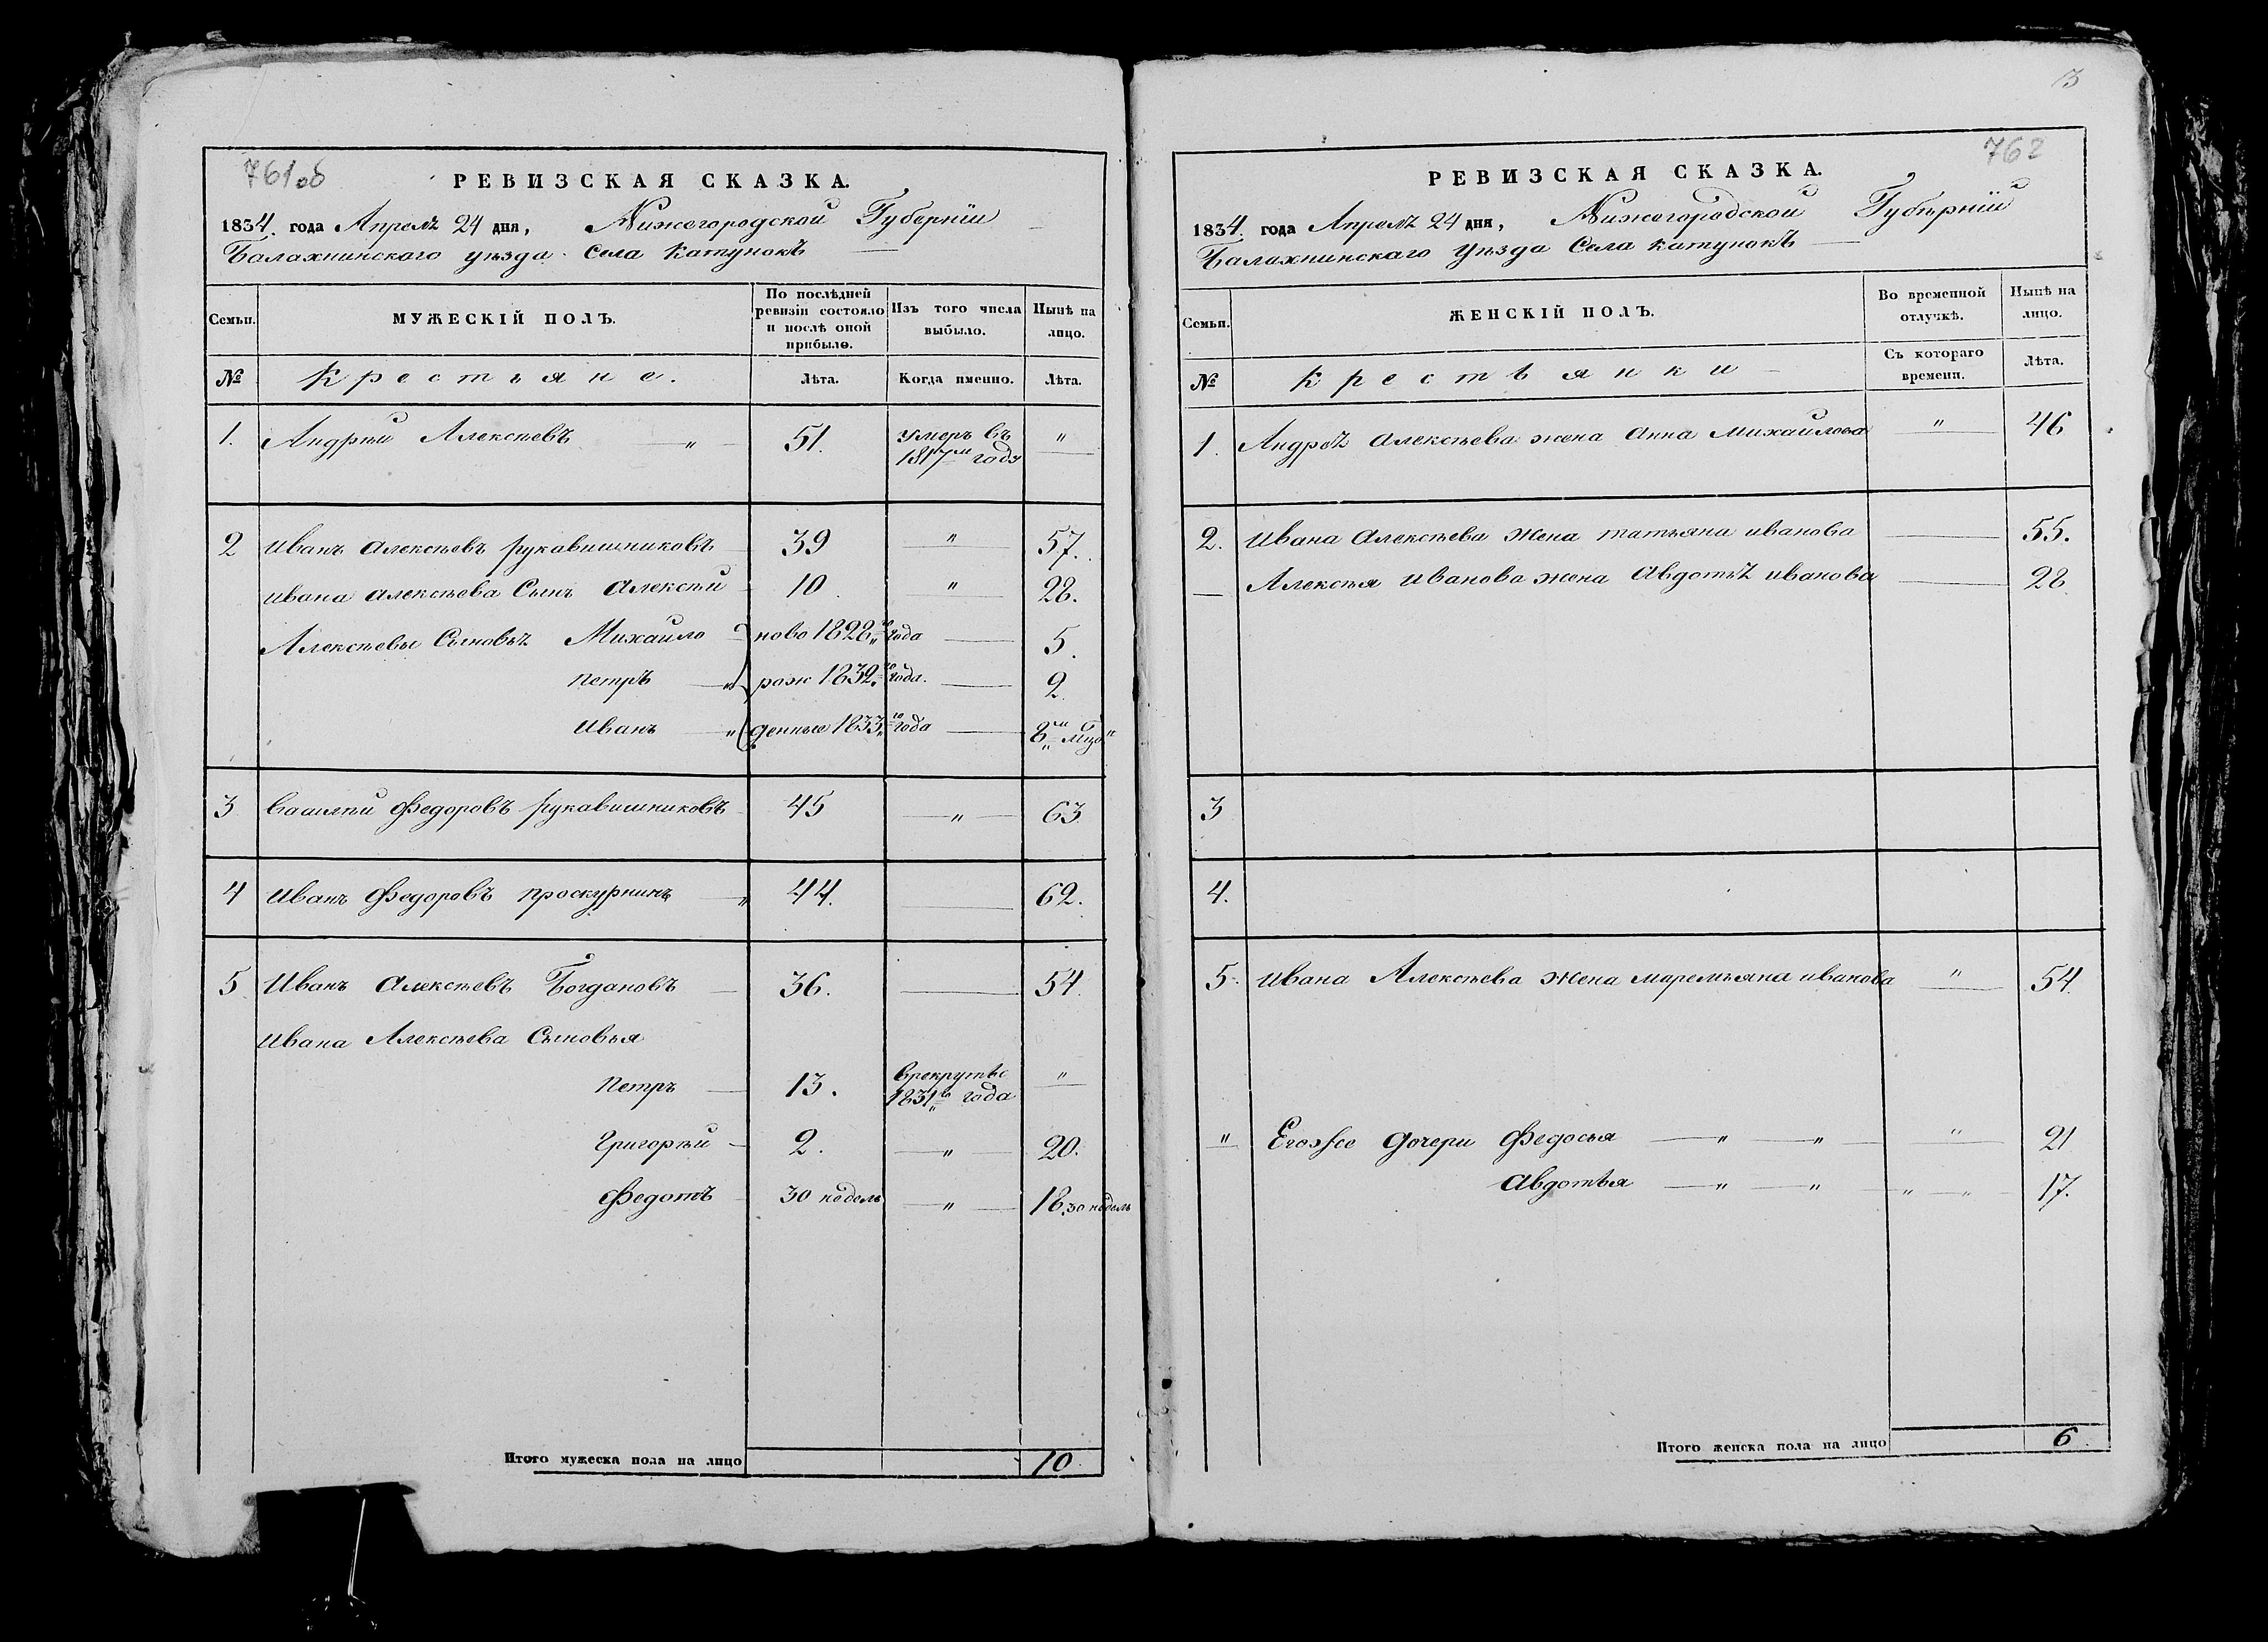 761об
РЕВИЗСКАЯ СКАЗКА.
1834. года Апреля 24 дня, Нижегородской Губернiи
Балахнинскаго уѣзда Села Катунокъ
Семьи. МУЖЕСКІЙ ПОЛЪ. По послѣдней ревизіи состояло и послѣ оной прибыло. Изъ того числа выбыло. Нынѣ на лицо.
№ Крестьяне. Лѣта. Когда именно. Лѣта.
1. Андрѣй Алексѣевъ " 51. умеръ въ 1817м году "
2 Иванъ Алексѣевъ рукавишниковъ 39 " 57.
Ивана Алексѣева Сынъ Алексѣй 10 " 28.
Алексѣевы Сыновья Михайло ново 1828го года 5.
петръ " рож 1832го года. 2
Иванъ " денные 1833го года 8ми мцо"
3 Василѣй Федоровъ рукавишниковъ 45 " 63
4 Иванъ Федоровъ проскурнинъ " 44. 62.
5 Иванъ Алексѣевъ Богдановъ 36. 54.
Ивана Алексѣева Сыновья
петръ 13. врекруты 1831го года "
Григорѣй 2. " 20.
Федотъ 30 недель " 18. 30 недель
Итого мужеска пола на лицо 10
13
762
РЕВИЗСКАЯ СКАЗКА.
1834. года Апреля 24 дня, Нижегородской Губѣрнiи
Балахнинскаго Уѣзда Села Катунокъ
Семьи. ЖЕНСКІЙ ПОЛЪ. Во временной отлучкѣ. Нынѣ на лицо.
№ Крестьянки Съ котораго времени. Лѣта.
1. Андрея Алексѣева жена Анна Михайлова " 46
2. Ивана Алексѣева Жена татьяна иванова 55.
Алексѣя Иванова жена Авдотья иванова 28
3
4.
5. Ивана Алексѣева Жена маремьяна иванова " 54
" Егоже дочери Федосья " " " 21
Авдотья " " " " 17.
Итого женска пола на лицо 6